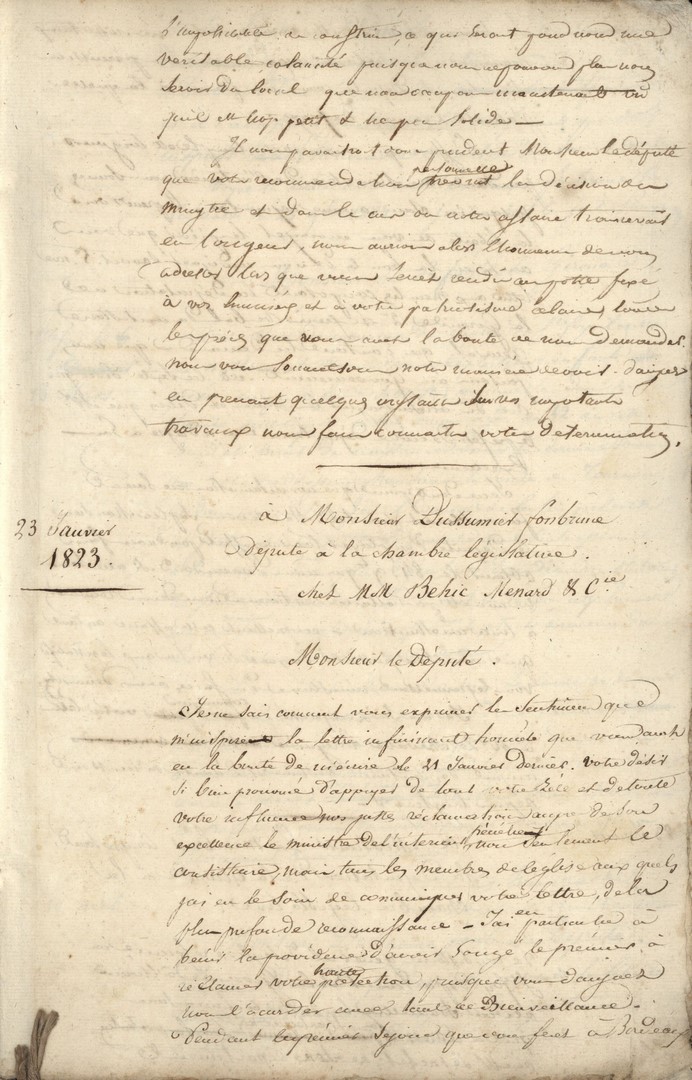 l'impossibilité de construire, ce qui seroit pour nous une
veritable calamité puisque nous ne pouvons plus nous
servir du local que nous occupons maintenant vu
qu'il est trop petit & ne peu solide —
Il nous paraitroit donc prudent Monsieur le député
que votre recommendation personnelle prévint la décision du
ministre et dans le cas où notre affaire traineroit
en longueur, nous aurions alors l'honneur de vous
adresser lors que vous serez rendu au poste fixé
à vos lumières et à votre patriotisme
les pièces que vous avez la bonté de nous demander.
nous vous Monsieur
en prenant quelques instans sur vos importants
travaux nous faire connaitre votre determination.
23 Janvier
1823.
à Monsieur Dussumier fonbrune
député à la chambre legislative.
chez MM Behic Menard & C.ie
Monsieur le Député.
Je ne sais comment vous exprimer les Sentimens que
m'inspire la lettre infiniment honnête que vous avez
eu la bonté de m'écrire le 21 Janvier dernier. votre désir
si bien prononcé d'appuyer de tout votre zèle et de toute
votre influence nos justes réclamations auprès de Son
excellence le ministre de l'interieur, pénètrent non seulement le
consistoire, mais tous les membres de l'église aux quels
j'ai eu le soin de communiquer votre lettre, de la
plus profonde reconnaissance — J'ai en particulier à
benir la providence d'avoir songé le premier à
réclamer votre haute protection, puisque vous daignez
nous l'accorder avec tant de Bienveillance.
Pendant le premier Sejour que vous fites à Bordeaux